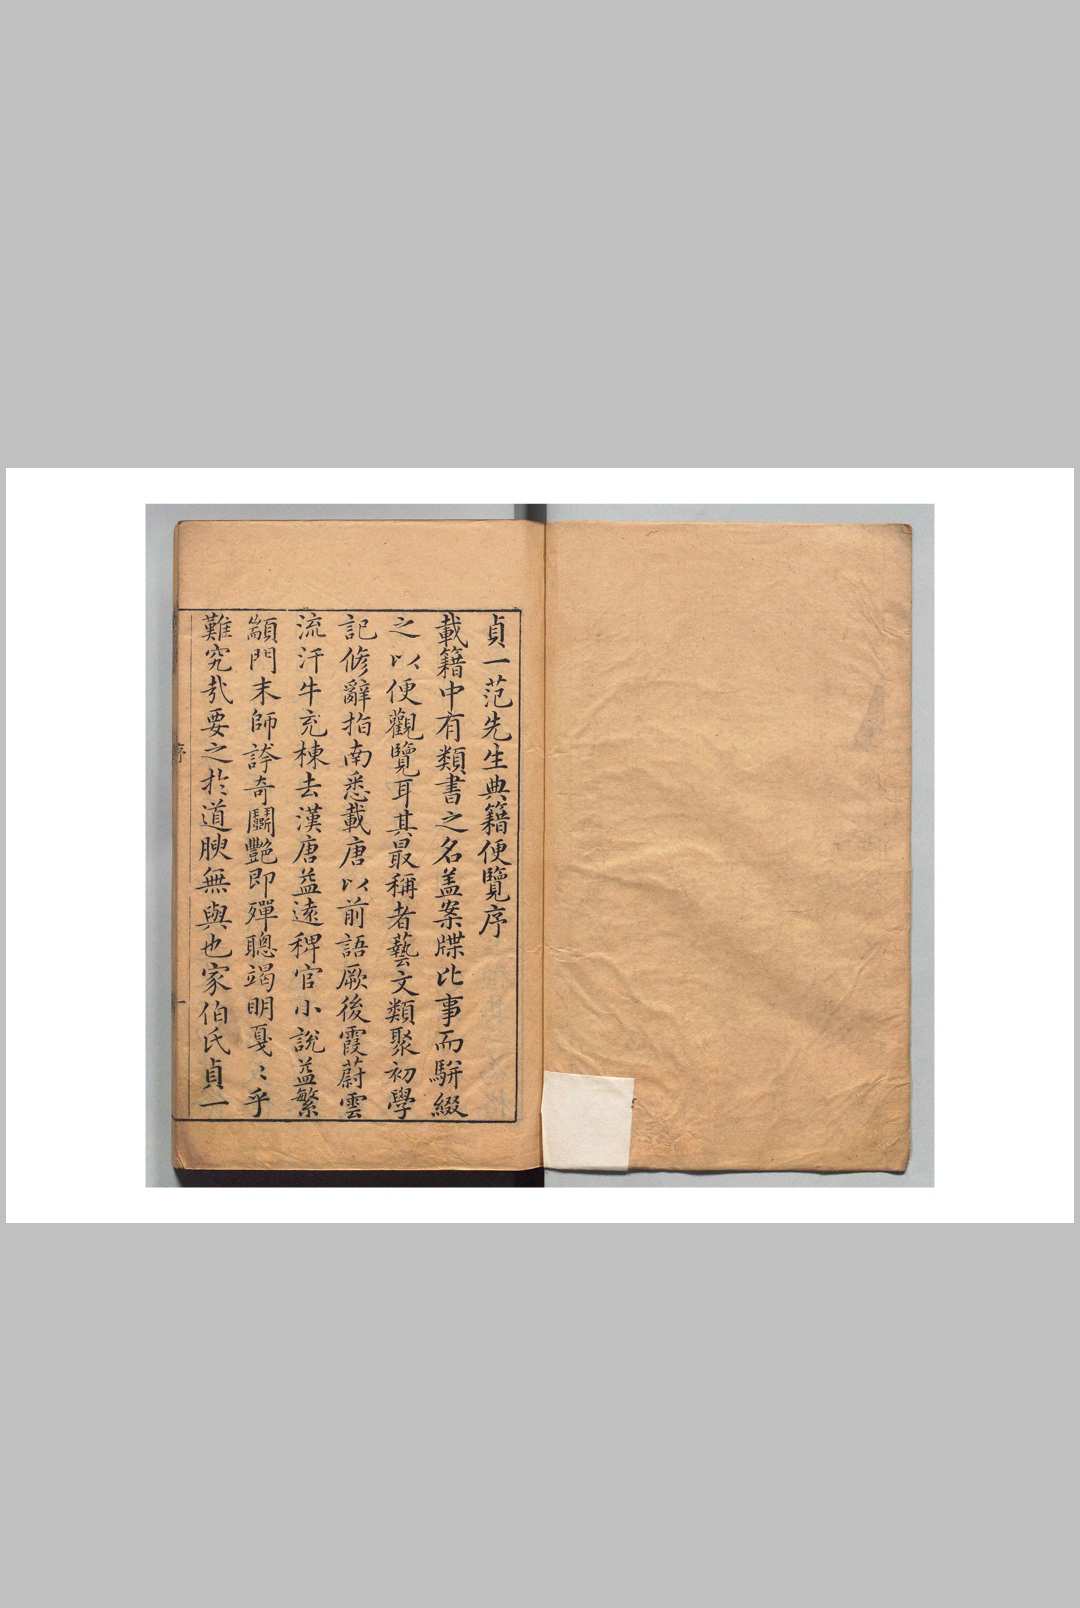 貞一范先生典籍便覽序
載籍中有類書之名盖案牒比事而駢綴
之以便觀覽耳其最稱者藝文類聚初學
記修辭指南悉載唐以前語厥後霞蔚雲
流汗牛充棟去漢唐益遠稗官小說益繁
顓門末師誇奇鬬艷即殫聰竭明戛〻乎
難究哉要之於道腴無與也家伯氏貞一
序
一